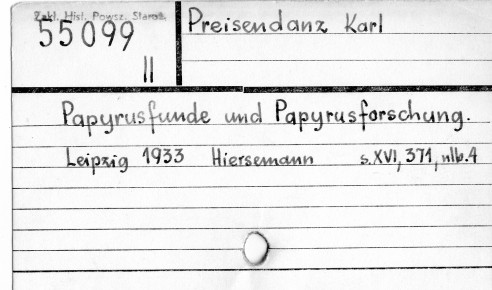 Zakł. Hist. Powsz. Staroż.
55099
II
Preisendanz Karl
Papyrusfunde und Papyrusforschung.
Leipzig 1933 Hiersemann s. XVI, 371, nlb. 4